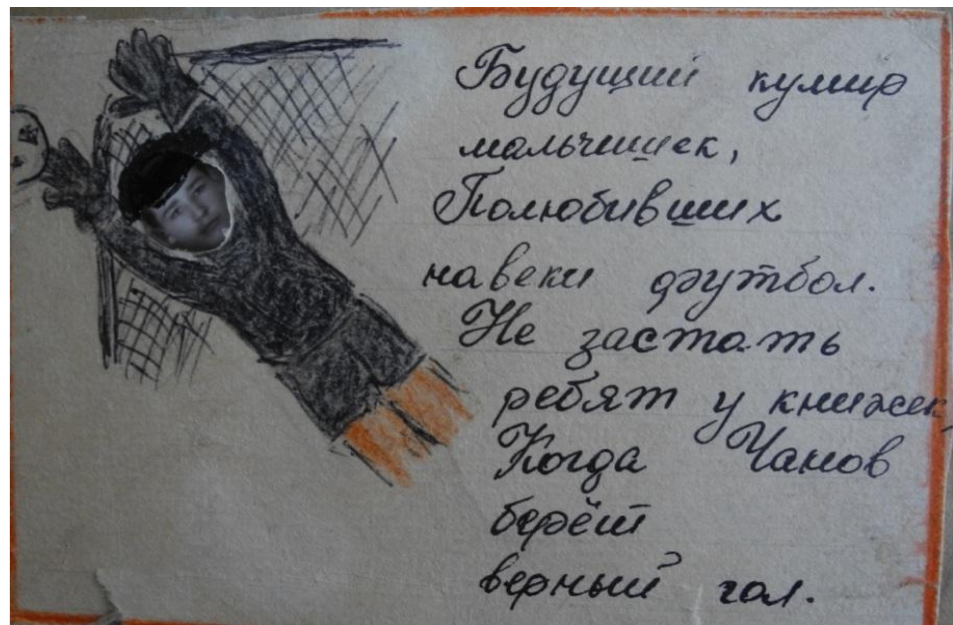 Будущий кумир
мальчишек,
Полюбивших
навеки футбол.
Не застать
ребят у книжек,
Когда Чанов
берёт
верный гол.